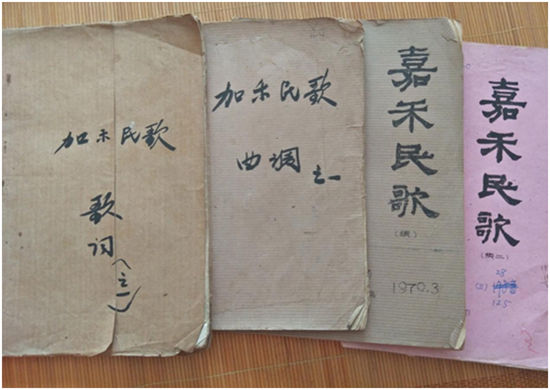 加禾民歌
歌词
(之一)
加禾民歌
曲调 之一
嘉禾民歌
(续)
1979.3
嘉禾民歌
(续二)
28
125